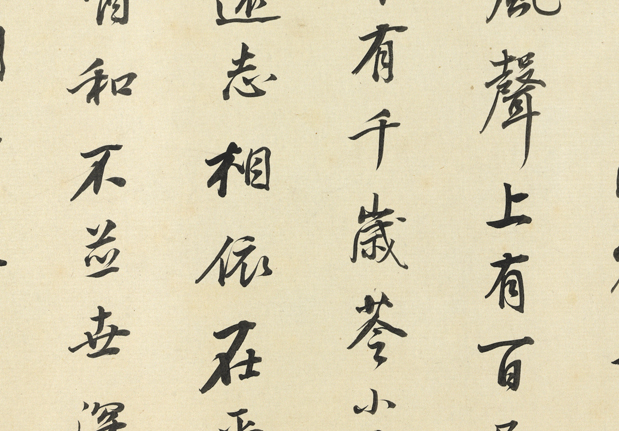 風聲上有百
有千歲苓小
遠志相依在
和不並世深